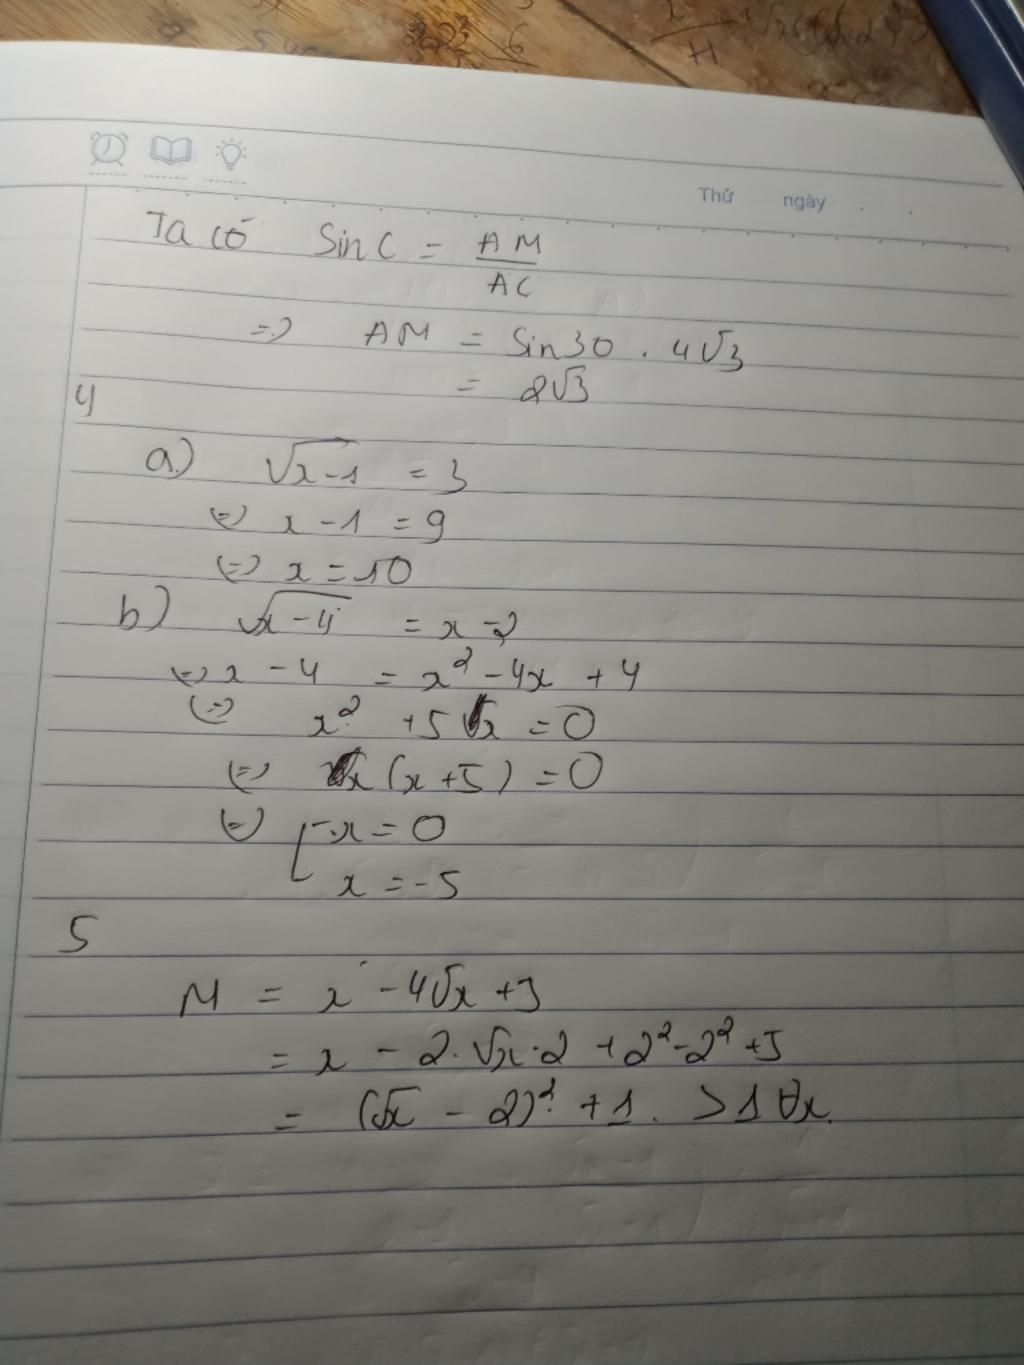 Thứ ngày
Ta có Sin C = AM/AC
=> AM = Sin 30 . 4√3
= 2√3
4
a) √x-1 = 3
<=> x - 1 = 9
<=> x = 10
b) √x-4 = x - 2
<=> x - 4 = x² - 4x + 4
<=> x² + 5x = 0
<=> x (x + 5) = 0
<=> [ x = 0
x = -5
5
M = x - 4√x + 5
= x - 2.√x.2 + 2² - 2² + 5
= (√x - 2)² + 1. > 1 ∀x.